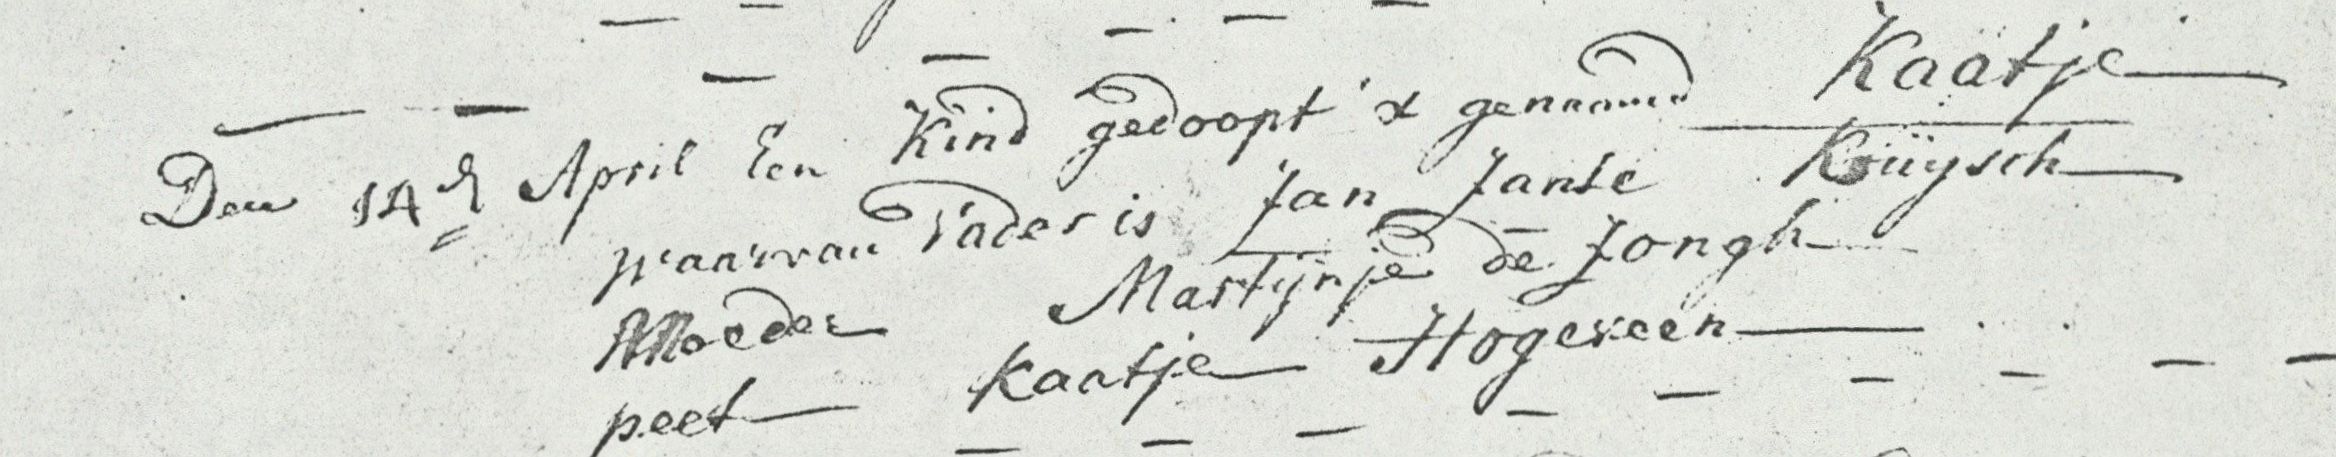 Den 14de April Een Kind gedoopt & genaamd Kaatje
waarvan Vader is Jan Janse Kruÿsch
Moeder Martijnje de Jongh
peet Kaatje Hogeveen